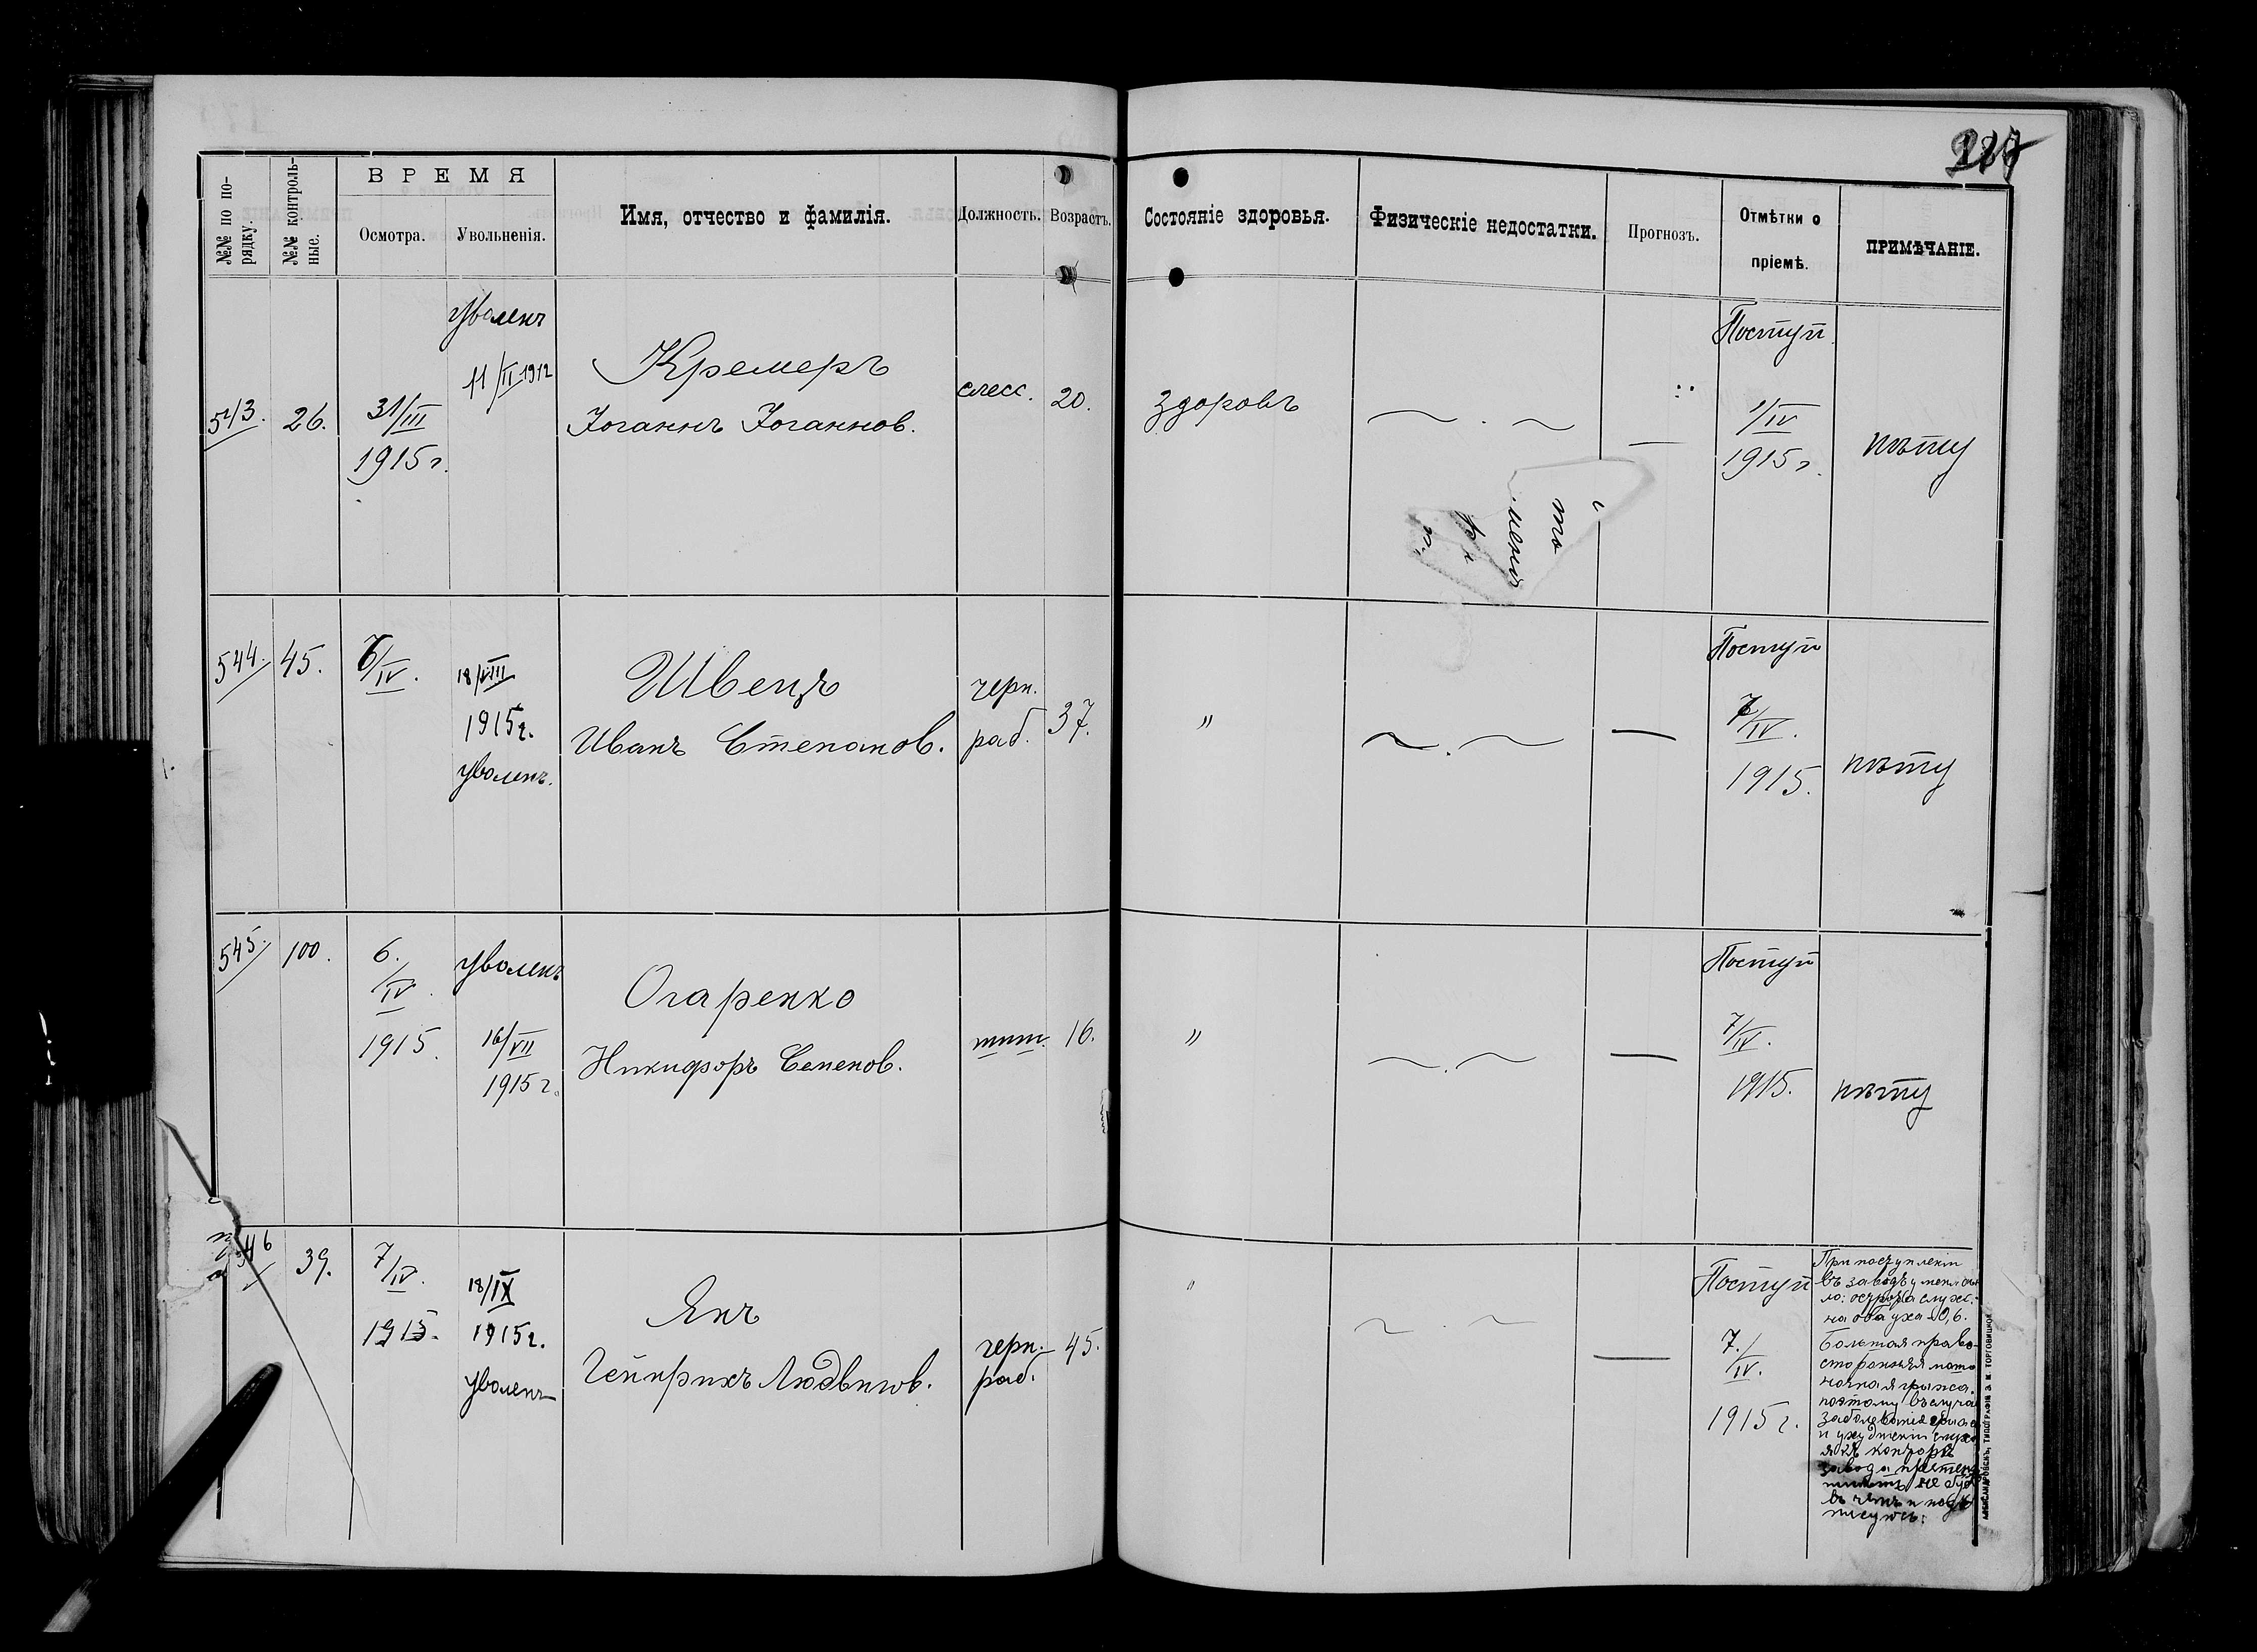 227
ВРЕМЯ
№№ по по-
рядку.
№№ контроль-
ные.
Осмотра.
Увольненія.
Имя, отчество и фамилія.
Должность.
Возрастъ.
Состояніе здоровья.
Физическіе недостатки.
Прогнозъ.
Отмѣтки о
пріемѣ.
ПРИМѢЧАНІЕ.
543.
26.
31/III
1915 г.
Уволенъ
11/II 1912
Кремеръ
Іоганнъ Іоганнов.
слес.
20.
Здоровъ
~ . ~
—
Поступ.
1/IV
1915 г.
нѣту
544.
45.
6/IV.
18/VIII
1915 г.
уволенъ.
Швецъ
Иванъ Степанов.
черн.
раб.
37.
"
~ . ~
—
Поступ
7/IV.
1915.
нѣту
545.
100.
6.
/IV.
1915.
Уволенъ
16/VII
1915 г.
Огаренко
Никифоръ Семенов.
16.
"
~ . ~
—
Поступ
7/IV.
1915.
нѣту
546
39.
7/IV.
1915.
18/IX
1915 г.
уволенъ
Янъ
Гейнрихъ Людвигов.
черн.
раб.
45.
"
~ . ~
—
Поступ
7./IV.
1915 г.
При поступленіи
въ заводъ у меня
ло: острота слух.
на оба уха 0,6.
Большая право-
сторонняя
грыжа.
поэтому въ случа
заболеванія
и ухудшеніи слуха
я къ конторѣ
завода претен
не буд
въ чемъ и под
писуюсь:
АЛЕКСАНДРОВСКЪ, ТИПОГРАФІЯ З. И. ТОРГОВИЦКОЙ